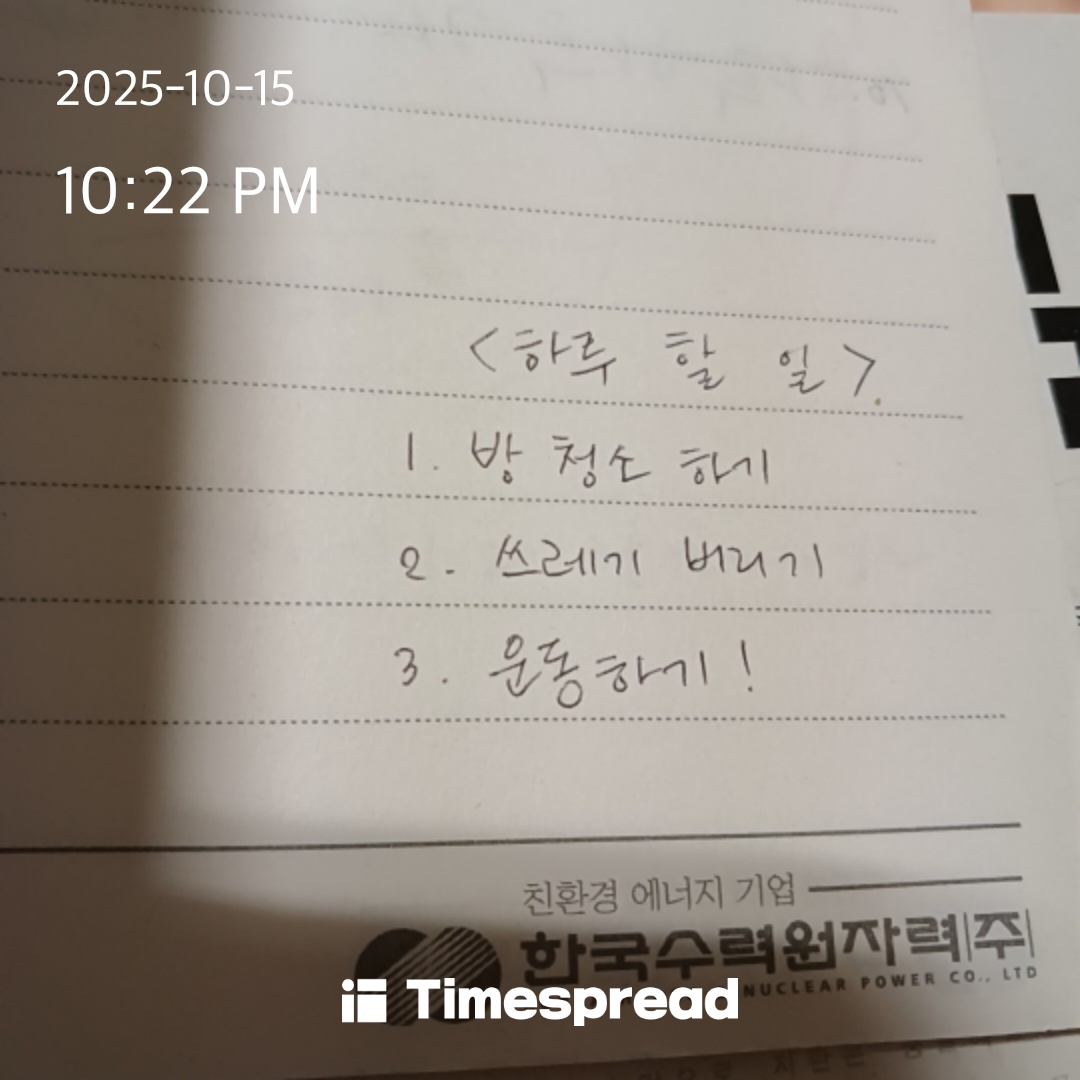 2025-10-15
10:22 PM
<하루 할 일>
1. 방 청소 하기
2. 쓰레기 버리기
3. 운동하기!
친환경 에너지 기업
한국수력원자력(주)
NUCLEAR POWER CO., LTD
Timespread